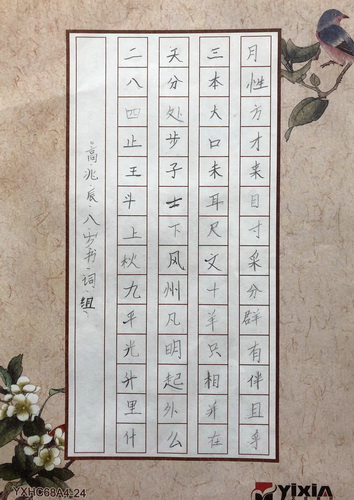 月性方才来目寸采分群有伴且争
三本大口未耳尺文十羊只相并在
天分处步子士下风州凡明起外么
二八四止王斗上秋九平光升里什
高兆辰八岁书词组
YXHC68A4-24
YIXIA